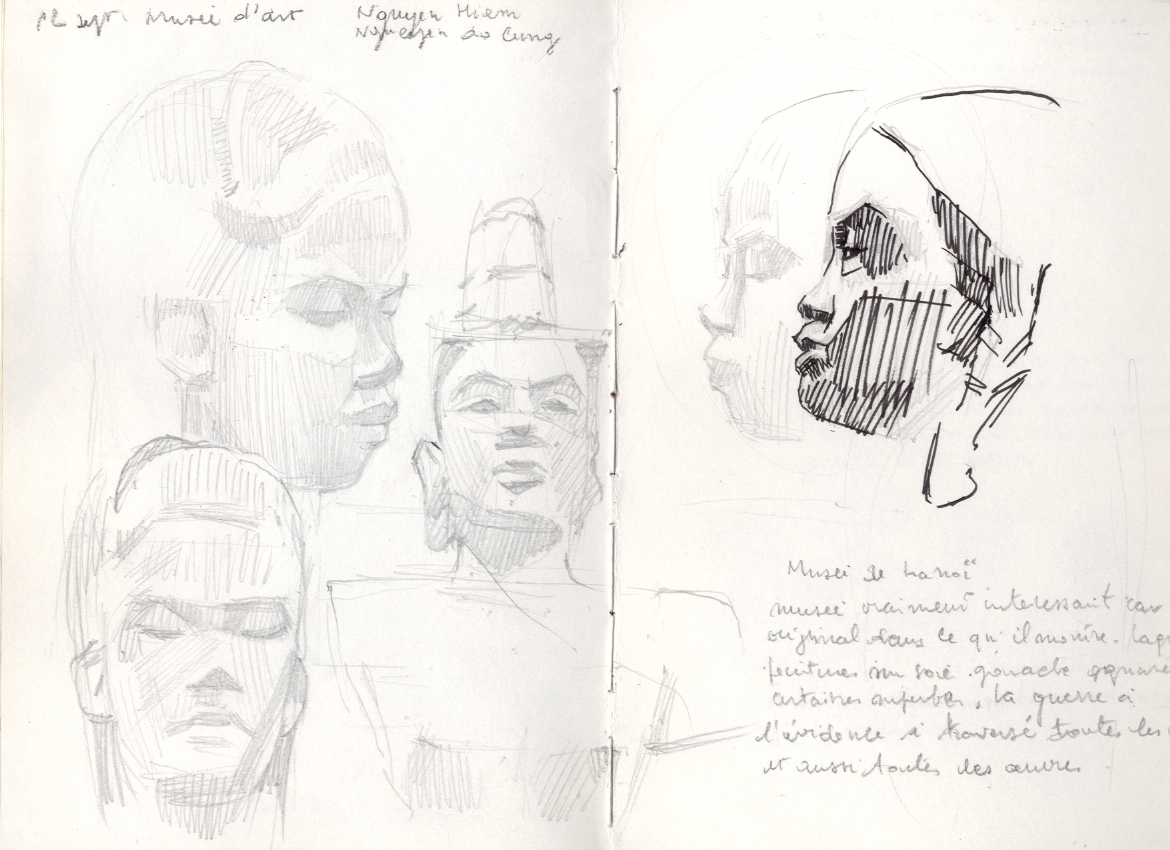 12 sept. Musée d'art
Nguyen Hiem
Nguyen do Cung
Musée de Hanoï
musée vraiment interessant car
original dans ce qu'il montre. laqu
peintures sur soie gouache aquare
certaines superbes, la guerre a
l'évidence a traversé toutes les
et aussi toutes les œuvres